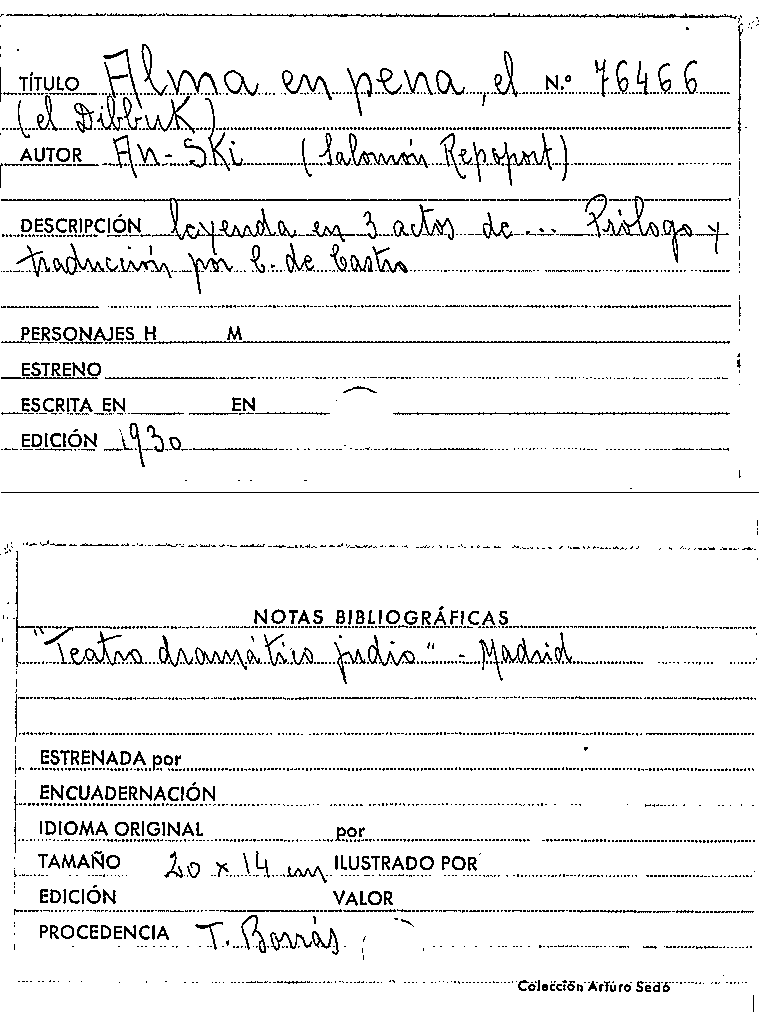 TÍTULO Alma en pena, el N.º 76466
(el Dibbuk)
AUTOR An-Ski (Salomón Repoport)
DESCRIPCIÓN leyenda en 3 actos de... Prólogo y
traducción por C. de Castro
PERSONAJES H M
ESTRENO
ESCRITA EN EN
EDICIÓN 1930
NOTAS BIBLIOGRÁFICAS
"Teatro dramático judio" - Madrid
ESTRENADA por
ENCUADERNACIÓN
IDIOMA ORIGINAL por
TAMAÑO 20 x 14 cm ILUSTRADO POR
EDICIÓN VALOR
PROCEDENCIA T. Borrás
Colección Arturo Sedó